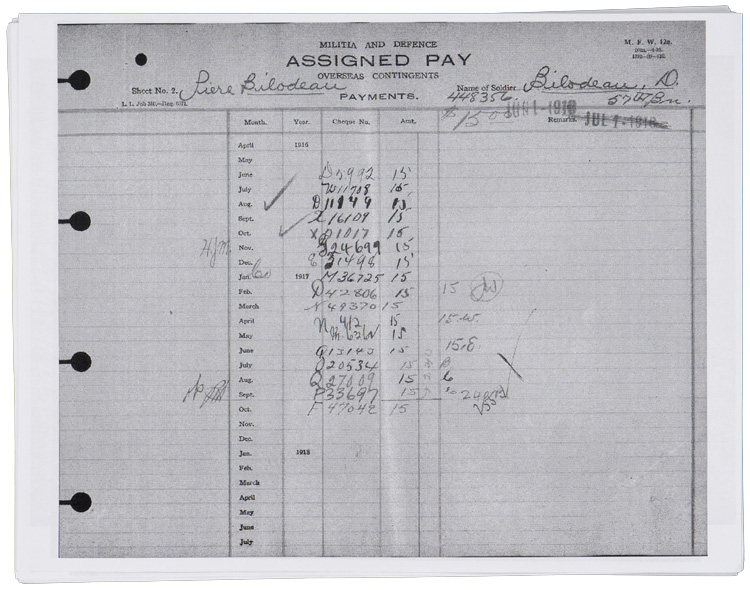 MILITIA AND DEFENCE
M. F. W. 12a.
ASSIGNED PAY
OVERSEAS CONTINGENTS
Sheet No. 2. Piere Bilodeau
Name of Soldier Bilodeau, D.
PAYMENTS.
448356 57th Bn.
$15.00 JUN 1 - 1916 Remarks. JUL 1 - 1916
Month. Year. Cheque No. Amt.
April 1916
May
June D 5992 15
July 11708 15
Aug. D 11149 15
Sept. 16109 15
Oct. 21017 15
Nov. 324699 15
Dec. 31498 15
Jan. 1917 M 36725 15
Feb. D 42806 15 15 JW
March N 49370 15
April N 412 15 15.W.
May 15
June 15 15.E.
July Q 20534 15
Aug. Q 27009 15
Sept. P 33697 15
Oct. F 47042 15
Nov.
Dec.
Jan. 1918
Feb.
March
April
May
June
July